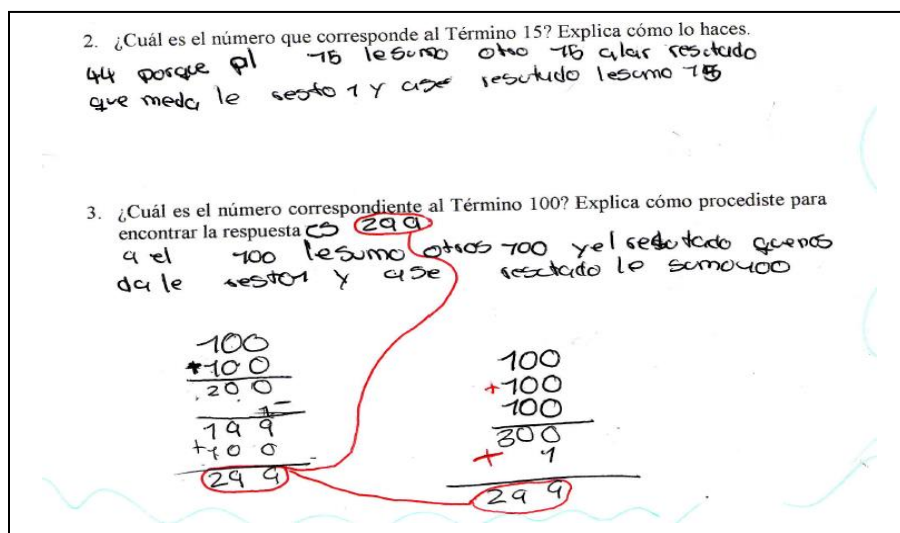 2. ¿Cuál es el número que corresponde al Término 15? Explica cómo lo haces.
44 porque al 15 lesumo otro 15 alar resctado
que meda le resto 1 y aese resutudo lesumo 15
3. ¿Cuál es el número correspondiente al Término 100? Explica cómo procediste para
encontrar la respuesta es 299
a el 100 lesumo otros 100 y el resutado quenos
da le resto1 y a se resctado le sumo100
100
+100
200
1-
199
+100
299
100
+100
100
300
+ 1
299